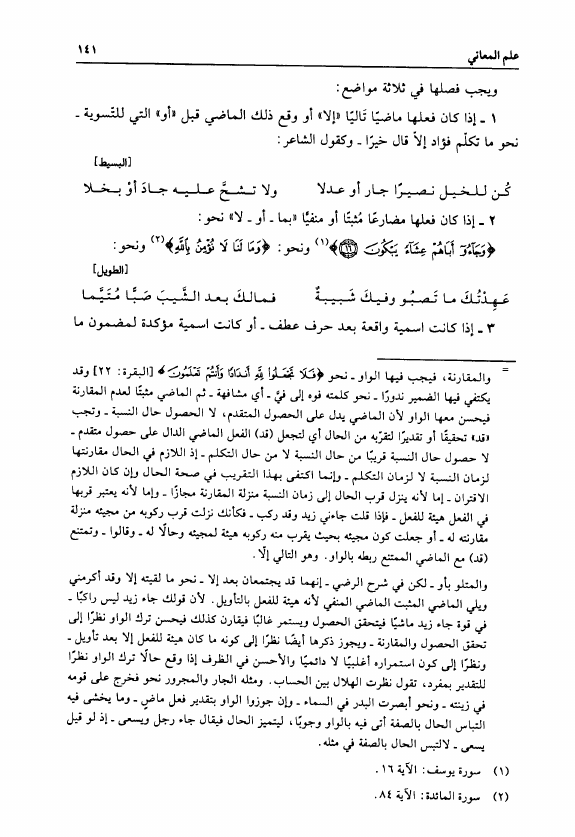 علم المعاني
١٤١
ويجب فصلها في ثلاثة مواضع:
١ ـ إذا كان فعلها ماضيًا تَاليًا «إلا» أو وقع ذلك الماضي قبل «أو» التي للتّسوية ـ
نحو ما تكلّم فؤاد إلاَّ قال خيرًا ـ وكقول الشاعر:
[البسيط]
كُن للخيل نصيرًا جار أو عدلا ولا تشحَّ عليه جادَ أوْ بخلا
٢ ـ إذا كان فعلها مضارعًا مُثبتًا أو منفيًّا «بما ـ أو ـ لا» نحو:
﴿وَجَآءُوٓ أَبَاهُمْ عِشَآءً يَبْكُونَ ١٦﴾(١) ونحو: ﴿وَمَا لَنَا لَا نُؤْمِنُ بِاللَّهِ﴾(٢) ونحو:
[الطويل]
عَهِدْتُكَ ما تَصبُو وفيكَ شَبيبةٌ فمالكَ بعد الشَّيبَ صَبًّا مُتَيَّما
٣ ـ إذا كانت اسمية واقعة بعد حرف عطف ـ أو كانت اسمية مؤكدة لمضمون ما
= والمقارنة، فيجب فيها الواو ـ نحو ﴿فَلَا تَجْعَلُوا لِلَّهِ أَندَادًا وَأَنتُمْ تَعْلَمُونَ﴾ [البقرة: ٢٢] وقد
يكتفي فيها الضمير ندورًا ـ نحو كلمته فوه إلى فيَّ ـ أي مشافهة ـ ثم الماضي مثبتًا لعدم المقارنة
فيحسن معها الواو لأن الماضي يدل على الحصول المتقدم، لا الحصول حال النسبة ـ وتجب
«قد» تحقيقًا أو تقديرًا لتقرّبه من الحال أي لتجعل (قد) الفعل الماضي الدال على حصول متقدم ـ
لا حصول حال النسبة قريبًا من حال النسبة لا من حال التكلم ـ إذ اللازم في الحال مقارنتها
لزمان النسبة لا لزمان التكلم ـ وإنما اكتفى بهذا التقريب في صحة الحال وإن كان اللازم
الاقتران ـ إما لأنه ينزل قرب الحال إلى زمان النسبة منزلة المقارنة مجازًا ـ وإما لأنه يعتبر قربها
في الفعل هيئة للفعل ـ فإذا قلت جاءني زيد وقد ركب ـ فكأنك نزلت قرب ركوبه من مجيئه منزلة
مقارنته له ـ أو جعلت كون مجيئه بحيث يقرب منه ركوبه هيئة لمجيئه وحالًا له ـ وقالوا ـ وتمتنع
(قد) مع الماضي الممتنع ربطه بالواو. وهو التالي إلَّا.
والمتلو بأو ـ لكن في شرح الرضي ـ إنهما قد يجتمعان بعد إلا ـ نحو ما لقيته إلا وقد أكرمني
ويلي الماضي المثبت الماضي المنفي لأنه هيئة للفعل بالتأويل. لأن قولك جاء زيد ليس راكبًا ـ
في قوة جاء زيد ماشيًا فيتحقق الحصول ويستمر غالبًا فيقارن كذلك فيحسن ترك الواو نظرًا إلى
تحقق الحصول والمقارنة ـ ويجوز ذكرها أيضًا نظرًا إلى كونه ما كان هيئة للفعل إلا بعد تأويل ـ
ونظرًا إلى كون استمراره أغلبيًا لا دائميًا والأحسن في الظرف إذا وقع حالًا ترك الواو نظرًا
للتقدير بمفرد، تقول نظرت الهلال بين الحساب. ومثله الجار والمجرور نحو فخرج على قومه
في زينته ـ ونحو أبصرت البدر في السماء ـ وإن جوزوا الواو بتقدير فعل ماضٍ ـ وما يخشى فيه
التباس الحال بالصفة أتى فيه بالواو وجوبًا، ليتميز الحال فيقال جاء رجل ويسعى ـ إذ لو قيل
يسعى ـ لالتبس الحال بالصفة في مثله.
(١) سورة يوسف: الآية ١٦.
(٢) سورة المائدة: الآية ٨٤.